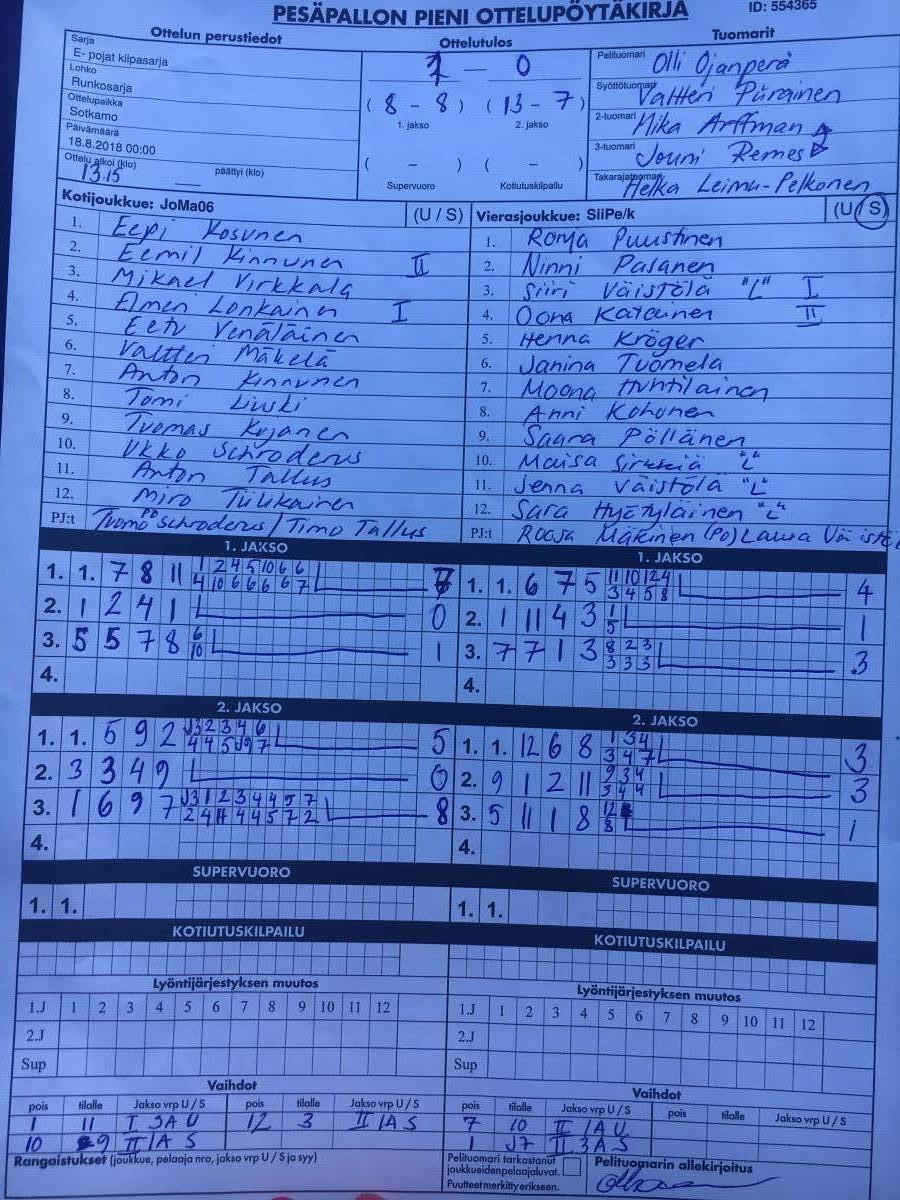 PESÄPALLON PIENI OTTELUPÖYTÄKIRJA ID: 554365
Ottelun perustiedot
Sarja
E- pojat kilpasarja
Lohko
Runkosarja
Ottelupaikka
Sotkamo
Päivämäärä
18.8.2018 00:00
Ottelu alkoi (klo) päättyi (klo)
13.15
Ottelutulos
1 — 0
( 8 - 8 ) ( 13 - 7 )
1. jakso 2. jakso
( - ) ( - )
Supervuoro Kotiutuskilpailu
Tuomarit
Pelituomari Olli Ojanperä
Syöttötuomari Valtteri Piirainen
2-tuomari Mika Arffman
3-tuomari Jouni Remes
Takarajatuomari Helka Leimu-Pelkonen
Kotijoukkue: JoMa06 (U / S)
1. Eepi Kosunen
2. Eemil Kinnunen II
3. Mikael Virkkala
4. Elmeri Lonkainen I
5. Eetu Venäläinen
6. Valtteri Mäkelä
7. Anton Kinnunen
8. Tomi Liuski
9. Tuomas Kujanen
10. Ukko Schroderus
11. Anton Tallus
12. Miro Tulikainen
PJ:t Tuomo PO Schroderus / Timo Tallus
Vierasjoukkue: SiiPe/k (U / S)
1. Roma Puustinen
2. Ninni Pasanen
3. Siiri Väistölä "L" I
4. Oona Katainen II
5. Henna Kröger
6. Janina Tuomela
7. Moona Huhtilainen
8. Anni Kohonen
9. Saara Pöllänen
10. Maisa Sirkkiä "L"
11. Jenna Väistölä "L"
12. Sara Hyetyläinen "L"
PJ:t Roosa Mäkinen (PO) Laura Väistö
1. JAKSO
1. 1. 7 8 11 1 2 4 5 10 6 6
4 10 6 6 6 6 7 7
2. 1 2 4 1 0
3. 5 5 7 8 6
10 1
4.
1. JAKSO
1. 1. 6 7 5 11 10 12 4
3 4 5 8 4
2. 1 11 4 3 1
5 1
3. 7 7 1 3 8 2 3
3 3 3 3
4.
2. JAKSO
1. 1. 5 9 2 J3 2 3 4 6
4 4 5 J9 7 5
2. 3 3 4 9 0
3. 1 6 9 7 J3 1 2 3 4 4 5 7
2 4 11 4 4 5 7 2 8
4.
2. JAKSO
1. 1. 12 6 8 1 3 4
3 4 7 3
2. 9 1 2 11 9 3 4
3 4 4 3
3. 5 11 1 8 12
8 1
4.
SUPERVUORO
1. 1.
SUPERVUORO
1. 1.
KOTIUTUSKILPAILU
KOTIUTUSKILPAILU
Lyöntijärjestyksen muutos
1.J 1 2 3 4 5 6 7 8 9 10 11 12
2.J
Sup
Lyöntijärjestyksen muutos
1.J 1 2 3 4 5 6 7 8 9 10 11 12
2.J
Sup
Vaihdot
pois tilalle Jakso vrp U / S pois tilalle Jakso vrp U / S
1 11 I 3A U 12 3 II 1A S
10 9 II 1A S
Vaihdot
pois tilalle Jakso vrp U / S pois tilalle Jakso vrp U / S
7 10 II 1A U
1 J7 I 3A S
Rangaistukset (joukkue, pelaaja nro, jakso vrp U / S ja syy)
Pelituomari tarkastanut
joukkueidenpelaajaluvat.
Puutteet merkitty erikseen.
Pelituomarin allekirjoitus